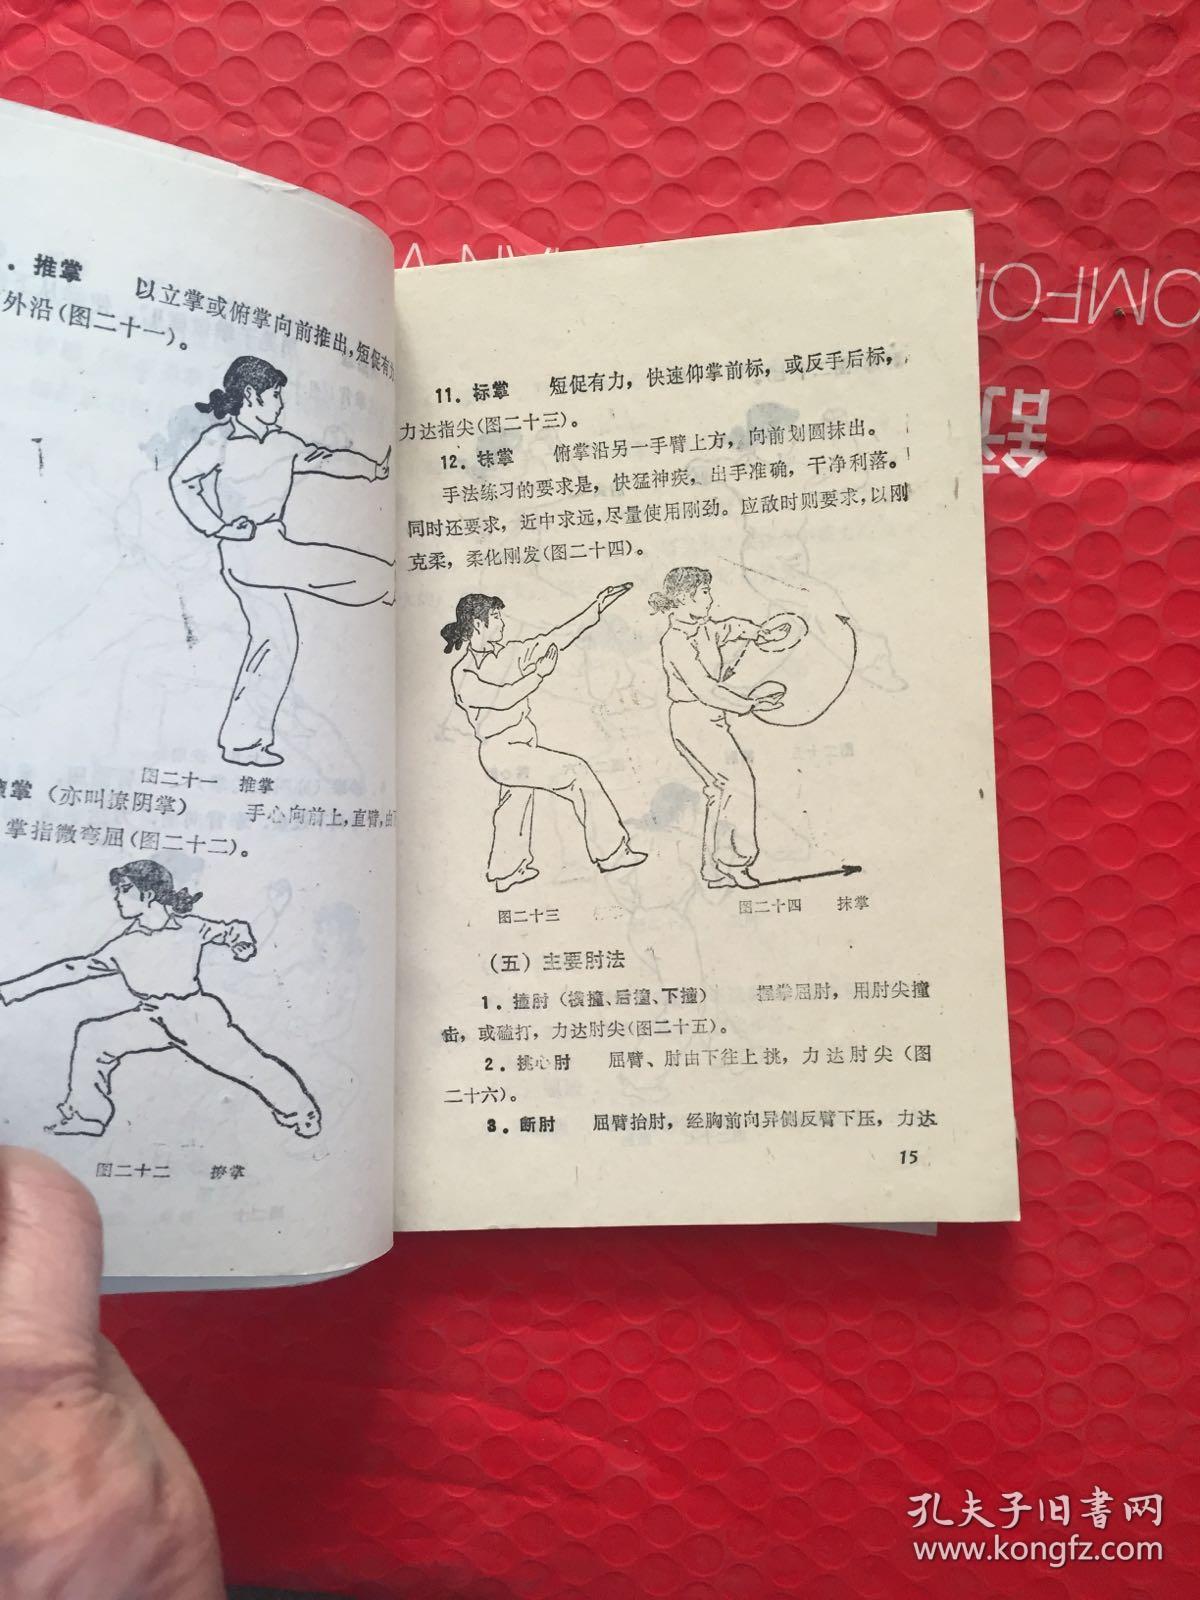 ．推掌　以立掌或俯掌向前推出，短促有力
外沿（图二十一）。
图二十一　推掌
掌（亦叫撩阴掌）　手心向前上，直臂，由
掌指微弯屈（图二十二）。
图二十二　撩掌
11．标掌　短促有力，快速仰掌前标，或反手后标，
力达指尖（图二十三）。
12．抹掌　俯掌沿另一手臂上方，向前划圆抹出。
手法练习的要求是，快猛神疾，出手准确，干净利落。
同时还要求，近中求远，尽量使用刚劲。应敌时则要求，以刚
克柔，柔化刚发（图二十四）。
图二十三
图二十四　抹掌
（五）主要肘法
1．撞肘（横撞、后撞、下撞）　握拳屈肘，用肘尖撞
击，或磕打，力达肘尖（图二十五）。
2．挑心肘　屈臂、肘由下往上挑，力达肘尖（图
二十六）。
3．断肘　屈臂抬肘，经胸前向异侧反臂下压，力达
15
OMFO
孔夫子旧书网
www.kongfz.com